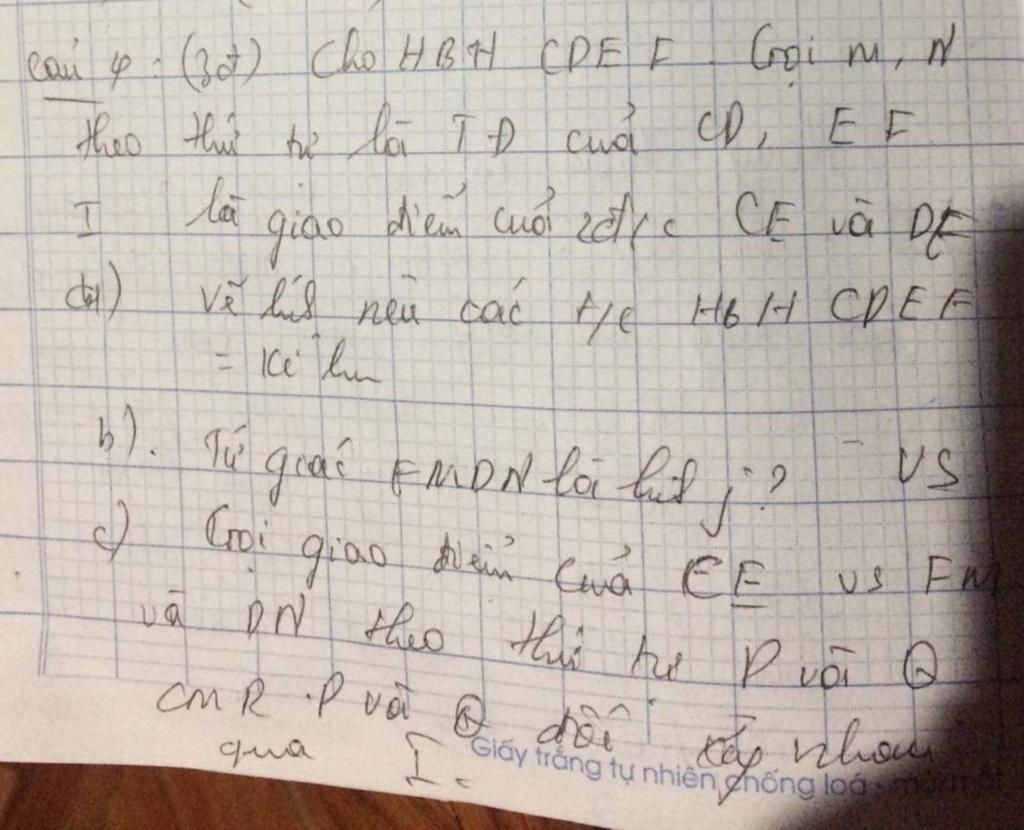 Câu 4: (3đ) Cho HBH CDEF. Gọi M, N
theo thứ tự là TĐ của CD, EF
I là giao điểm của 2đ/c CE và DF
a) Vẽ hình nêu các t/c HBH CDEF
b). Tứ giác FMDN là hình j? VS
c) Gọi giao điểm của CE vs FM
và DN theo thứ tự P và Q
CMR P và Q đối xứng nhau
qua I.
Giấy trắng tự nhiên, chống loá